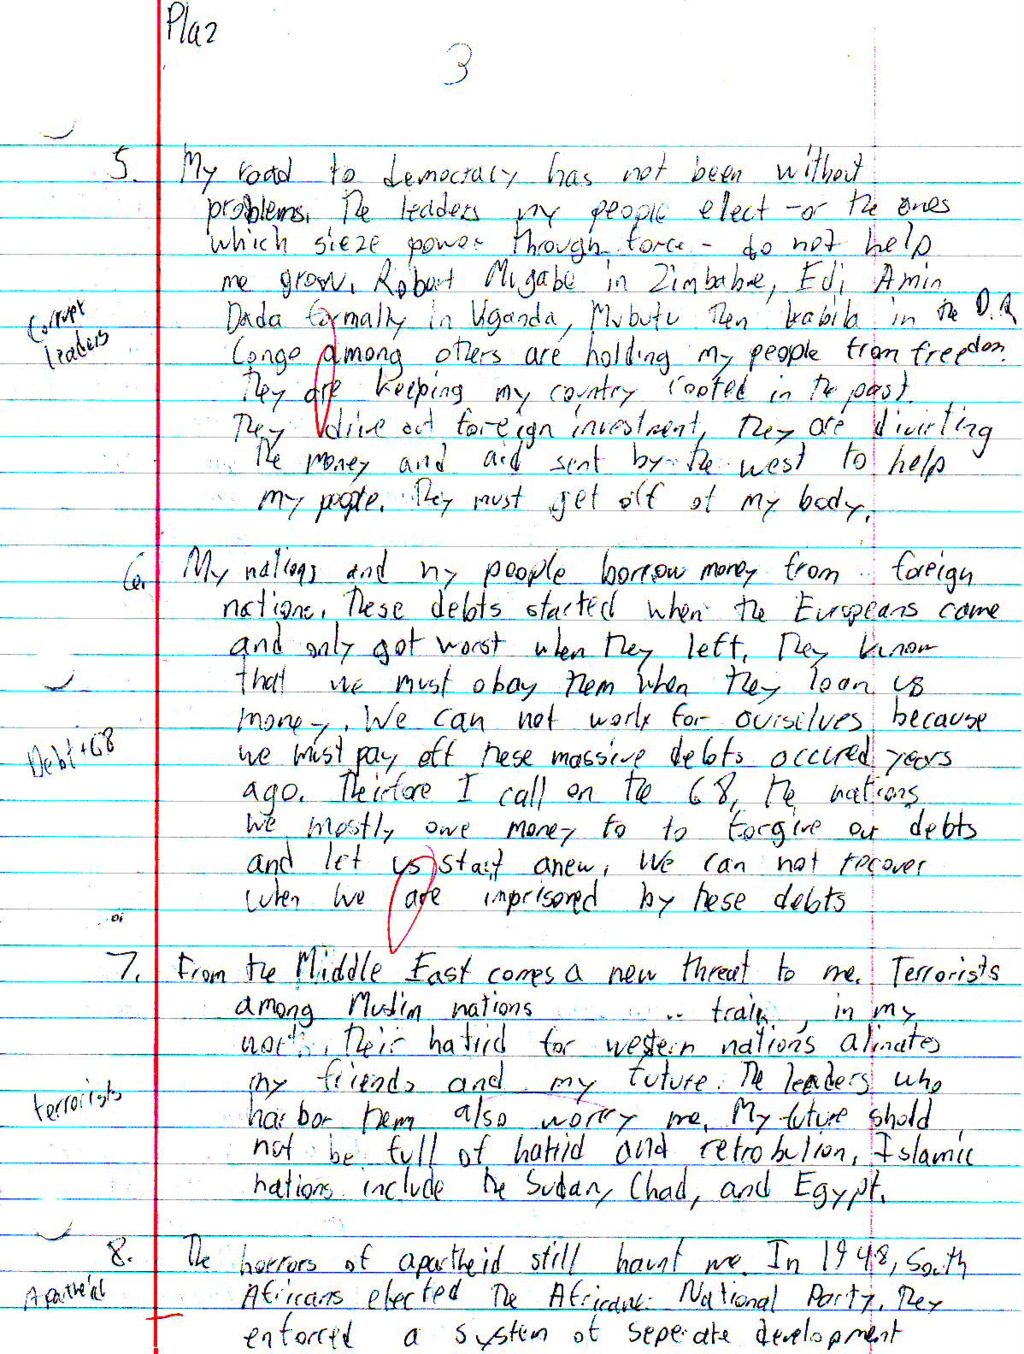 Plaz
3
5. My road to democracy has not been without
problems. The leaders my people elect - or the ones
which sieze power through force - do not help
me grow. Robert Mugabe in Zimbabwe, Edi Amin
Dada formally in Uganda, Mubutu then Kabila in the D.R.
Corrupt leaders
Congo among others are holding my people from freedom.
They are keeping my country rooted in the past.
They drive out foreign investment, they are divirting
the money and aid sent by the west to help
my people. They must get off of my body.
6. My nations and my people borrow money from foreign
nations. These debts started when the Europeans came
and only got worst when they left. They know
that we must obay them when they loan us
money. We can not work for ourselves because
Debt + G8
we must pay off these massive debts occured years
ago. Theirfore I call on the G8, the nations
we mostly owe money to to forgive our debts
and let us start anew. We can not recover
when we are imprisoned by these debts
7. From the Middle East comes a new threat to me. Terrorists
among Muslim nations train in my
north. Their hatrid for western nations alinates
my friends and my future. The leaders who
terrorists
harbor them also worry me. My future shold
not be full of hatrid and retrobution. Islamic
nations include the Sudan, Chad, and Egypt.
8. The horrors of apartheid still haunt me. In 1948, South
Apartheid
Africans elected the National Party. They
enforced a system of seperate development